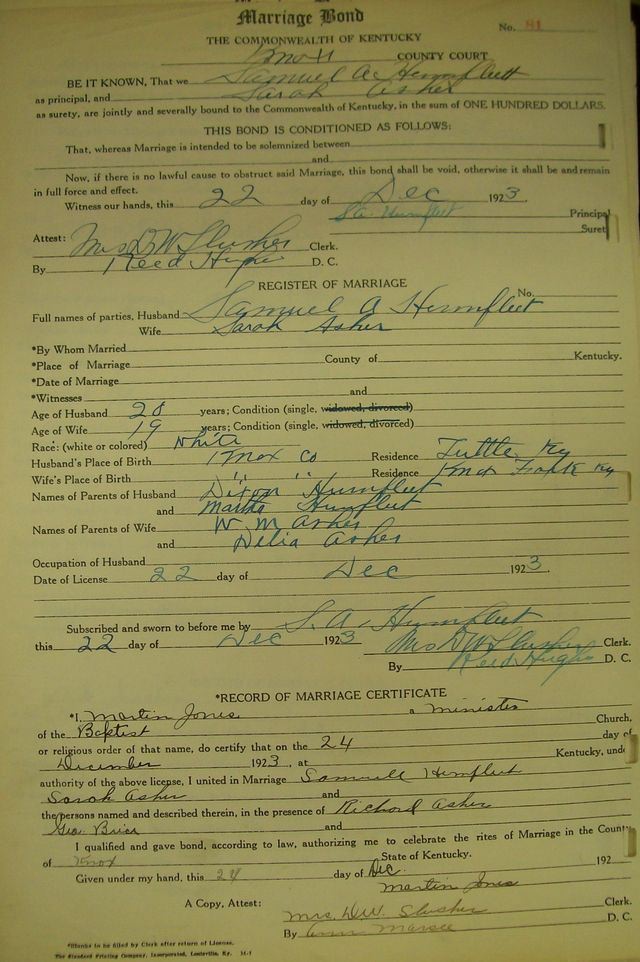 Marriage Bond
No. 81
THE COMMONWEALTH OF KENTUCKY
Knox COUNTY COURT
BE IT KNOWN, That we Samuel A. Humfleet
as principal, and Sarah Asher
as surety, are jointly and severally bound to the Commonwealth of Kentucky, in the sum of ONE HUNDRED DOLLARS.
THIS BOND IS CONDITIONED AS FOLLOWS:
That, whereas Marriage is intended to be solemnized between
and
Now, if there is no lawful cause to obstruct said Marriage, this bond shall be void, otherwise it shall be and remain
in full force and effect.
Witness our hands, this 22 day of Dec 1923.
S. A. Humfleet Principal
Suret
Attest: Mrs D W Slusher Clerk.
By Reed D. C.
REGISTER OF MARRIAGE
No.
Full names of parties, Husband Samuel A Humfleet
Wife Sarah Asher
*By Whom Married
*Place of Marriage County of Kentucky.
*Date of Marriage
*Witnesses and
Age of Husband 20 years; Condition (single, widowed, divorced)
Age of Wife 19 years; Condition (single, widowed, divorced)
Race: (white or colored) White
Husband's Place of Birth Knox Co Residence Tuttle Ky
Wife's Place of Birth " " Residence Knox Ky
Names of Parents of Husband Dixon Humfleet
and Martha Humfleet
Names of Parents of Wife W. M Asher
and Delia Asher
Occupation of Husband
Date of License 22 day of Dec 1923.
Subscribed and sworn to before me by S. A. Humfleet
this 22 day of Dec 1923 Mrs D W Slusher Clerk.
By Reed Hughs D. C.
*RECORD OF MARRIAGE CERTIFICATE
*I, Martin Jones a Minister
of the Baptist Church,
or religious order of that name, do certify that on the 24 day of
December 1923, at Kentucky, unde
authority of the above license, I united in Marriage Samuell Humfleet
Sarah Asher and
the persons named and described therein, in the presence of Richard Asher
Geo. Brice and
I qualified and gave bond, according to law, authorizing me to celebrate the rites of Marriage in the County
of Knox State of Kentucky.
Given under my hand, this 24 day of Dec. 192
Martin Jones
A Copy, Attest: Mrs. D.W. Slusher Clerk.
By Ann Marsee D. C.
*Blanks to be filled by Clerk after return of License.
The Standard Printing Company, Incorporated, Louisville, Ky. M-1